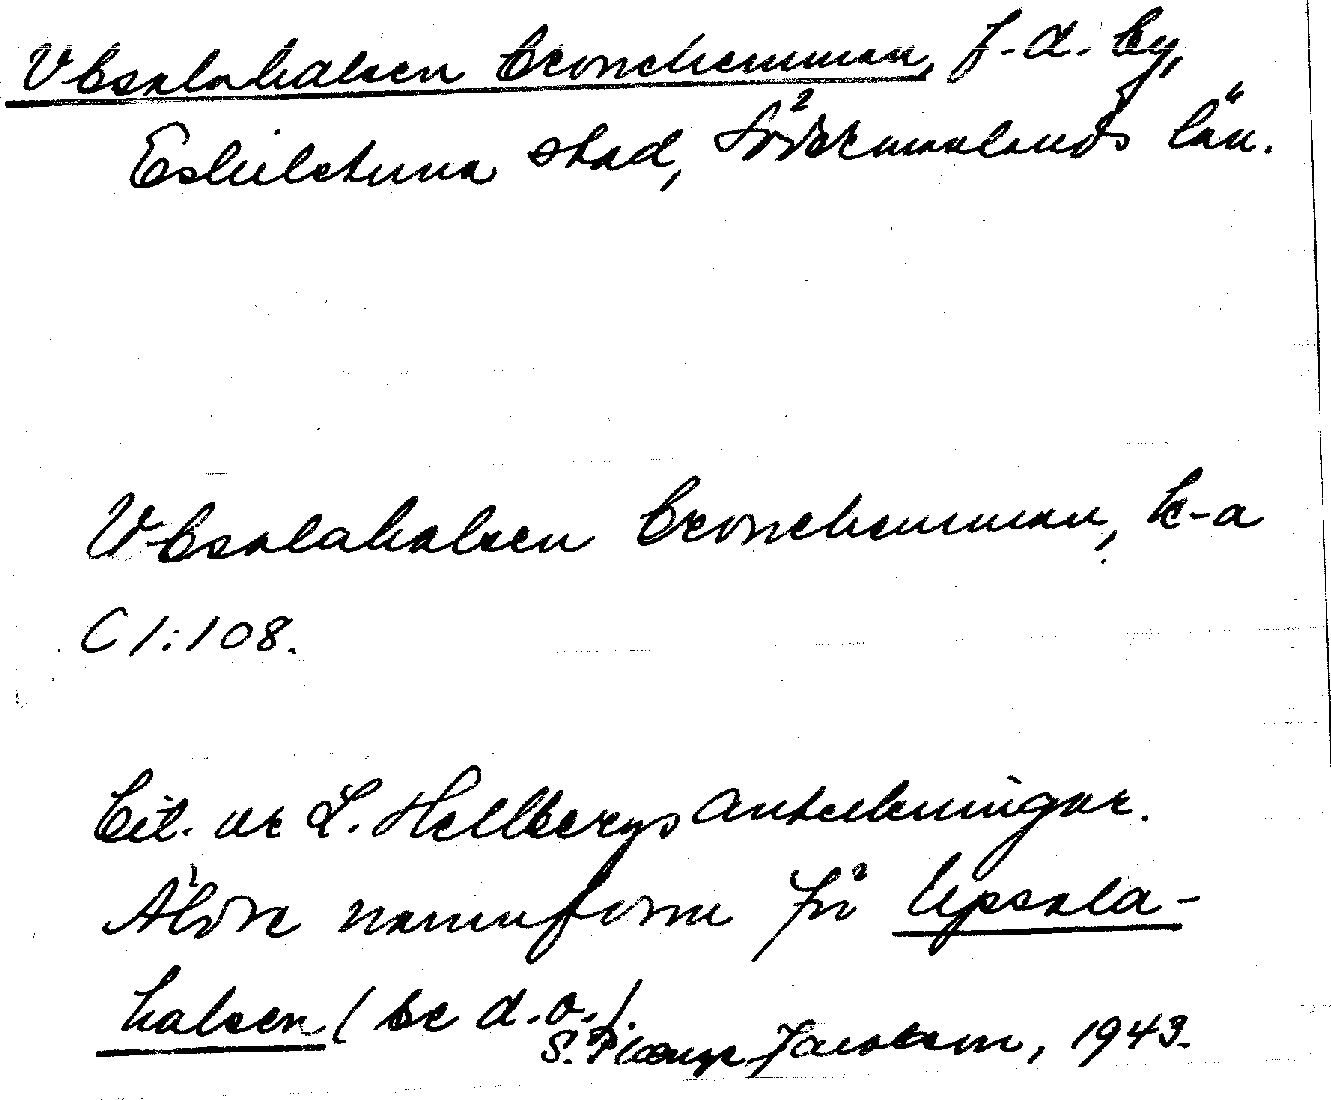 Vbsalahalsen Cronehemman, f. d. by,
Eskilstuna stad, Södermanlands län.
Vbsalahalsen Cronehemman, k-a
C 1:108.
Cit. ur L. Hellbergs anteckningar.
Äldre namnform för Upsala-
halsen (se d. o.).
S. Jacobson, 1943.